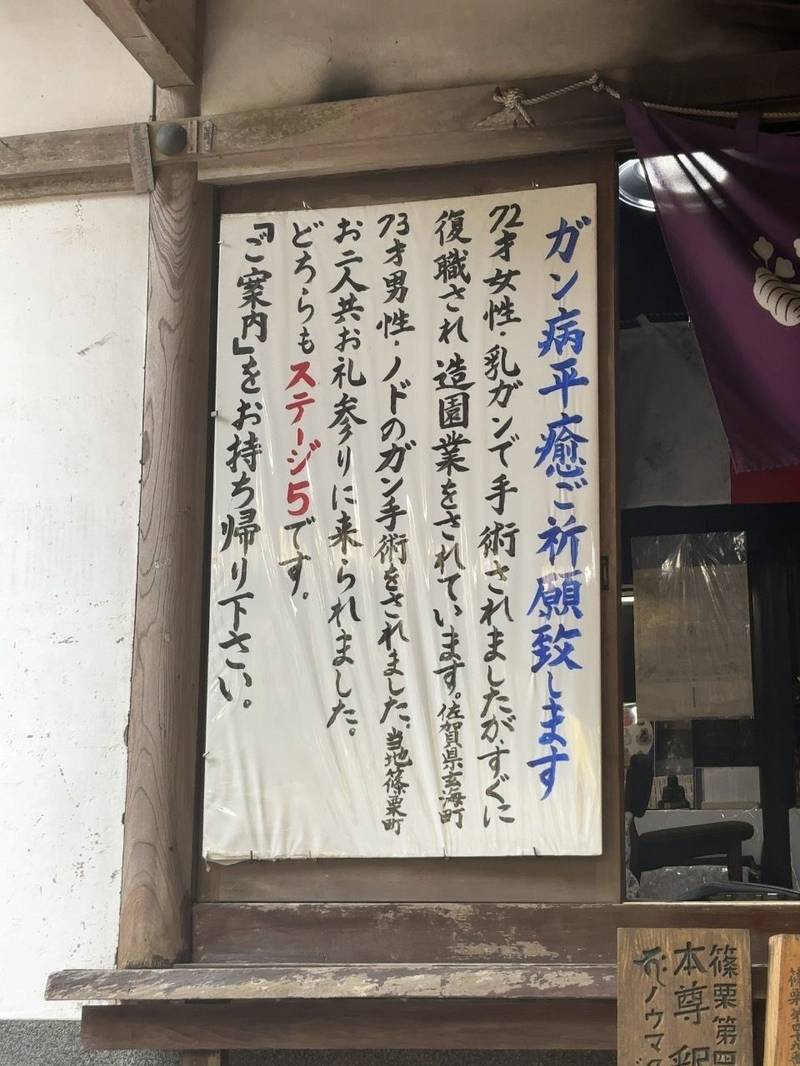 ガン病平癒ご祈願致します
72才女性・乳ガンで手術されましたが、すぐに
復職され造園業をされています。佐賀県玄海町
73才男性・ノドのガン手術をされました。当地篠栗町
お二人共お礼参りに来られました。
どちらもステージ5です。
「ご案内」をお持ち帰り下さい。
篠栗第四
本尊 釈
ノウマク
篠栗第四十